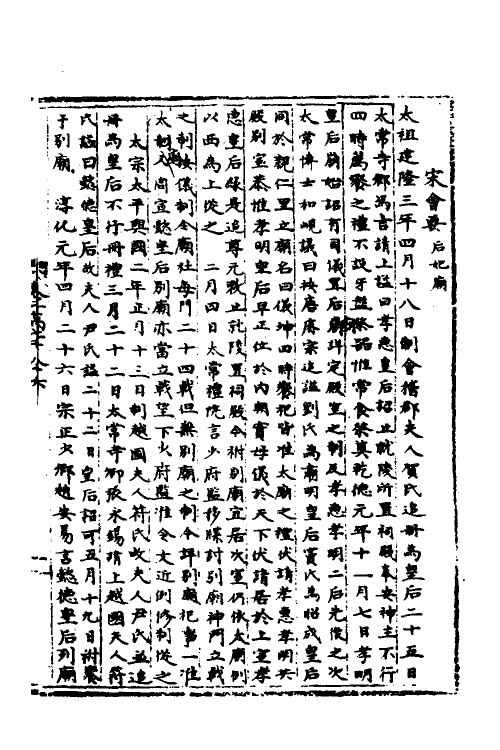 宋會要 后妃廟
太祖建隆三年四月十八日制會稽郡夫人賀氏追冊為皇后二十五日
太常寺卿馮吉請上謚曰孝惠皇后詔止就陵所置祠殿奉安神主不行
四時薦饗之禮不設牙盤祭器惟常食祭奠乾德元年十一月七日孝明
皇后廟始詔有司議置后廟詳定殿室之制及孝惠孝明二后先後之次
太常博士和峴議曰按唐睿宗追謚劉氏為肅明皇后竇氏為昭成皇后
同於親仁里立廟名曰儀坤四時饗祀皆准太廟之禮伏請孝惠孝明共
殿別室恭惟孝明皇后早正位於內朝實母儀於天下伏請居於上室孝
惠皇后緣是追尊元敕止就陵置祠殿今祔別廟宜居次室仍依太廟例
以西為上從之 二月四日太常禮院言少府監移牒討別廟神門立戟
之制按儀制令廟社每門二十四戟但無別廟之制今詳別廟祀事一准
太廟又尚宜懿皇后別廟亦當立戟望下少府監准令文近例修制從之
太宗太平興國二年正月十三日制越國夫人符氏故夫人尹氏並追
冊為皇后不行冊禮三月二十二日太常寺卿張永錫請上越國夫人符
氏謚曰懿德皇后故夫人尹氏謚二十二日皇后詔可五月十九日祔饗
于別廟 淳化元年四月二十六日宗正少卿趙安易言懿德皇后列廟